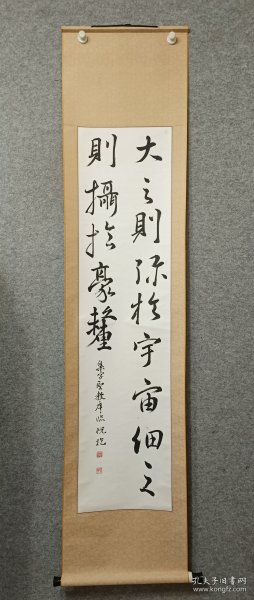 大之則弥於宇宙細之
則攝於豪釐
集字聖教序
孔夫子旧书网
www.kongfz.com